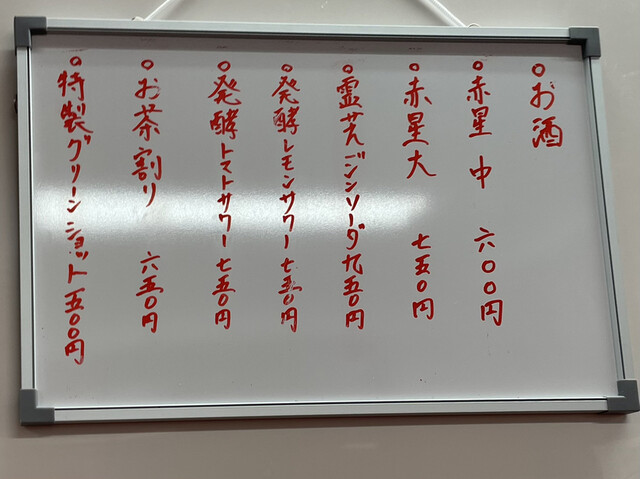 ○お酒
○赤星 中 六〇〇円
○赤星大 七五〇円
○霊サんジンソーダ九五〇円
○発酵レモンサワー七五〇円
○発酵トマトサワー七五〇円
○お茶割り 六五〇円
○特製グリーンショット五〇〇円